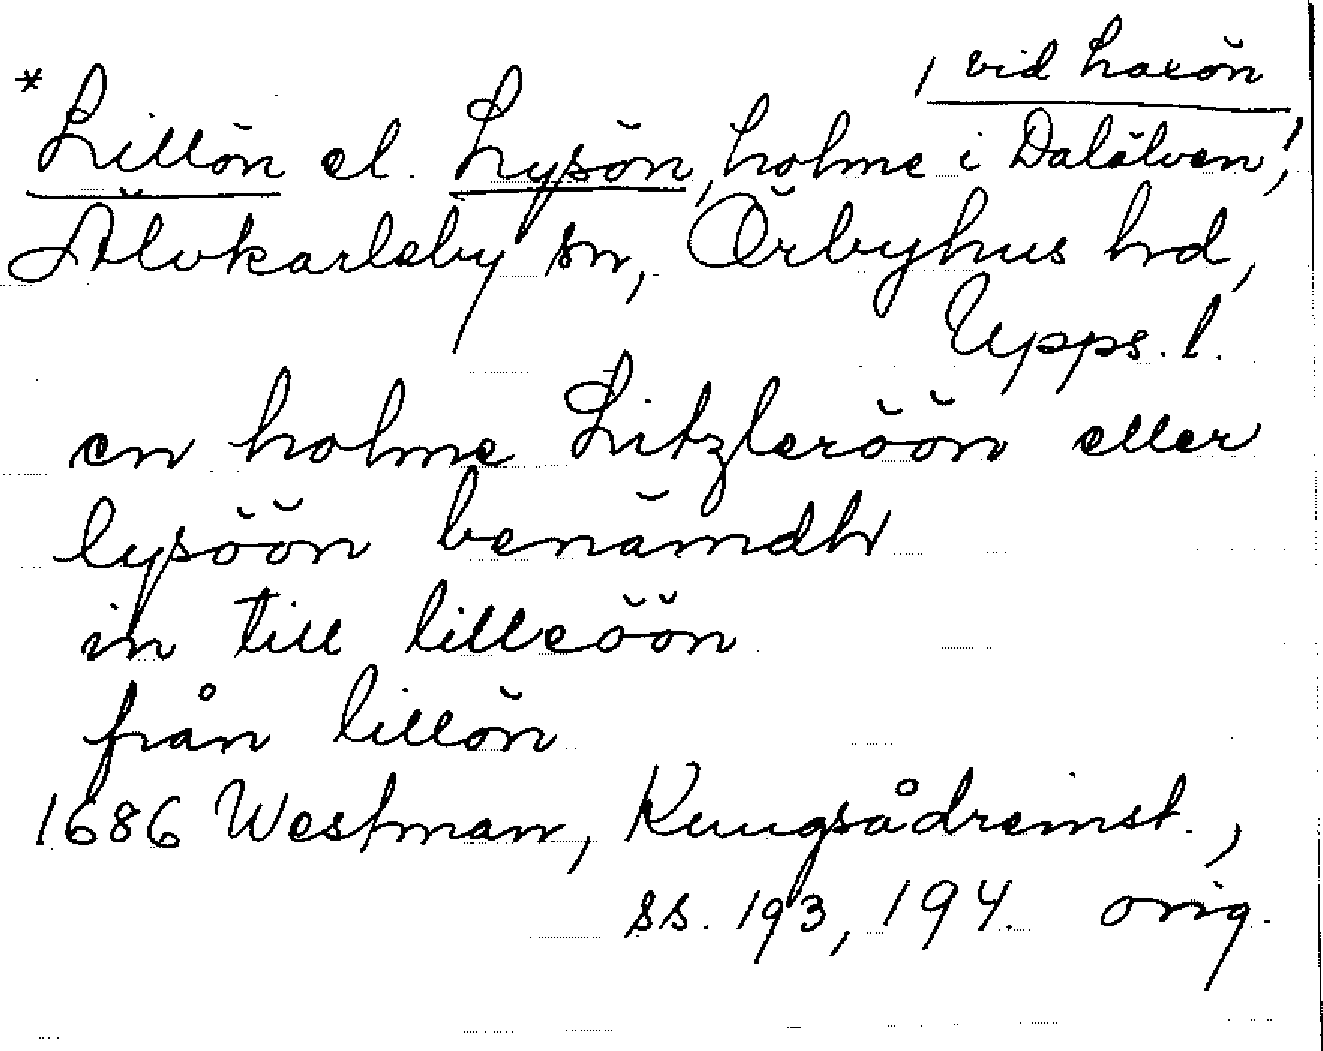 , vid Laxön
* Lillön el. Lysön, holme i Dalälven,
Älvkarleby sn, Örbyhus hd,
Upps. l.
en holme Litzleröön eller
lysöön benämdh
in till lilleöön
från lillön
1686 Westman, Kungsådreinst.,
ss. 193, 194. orig.